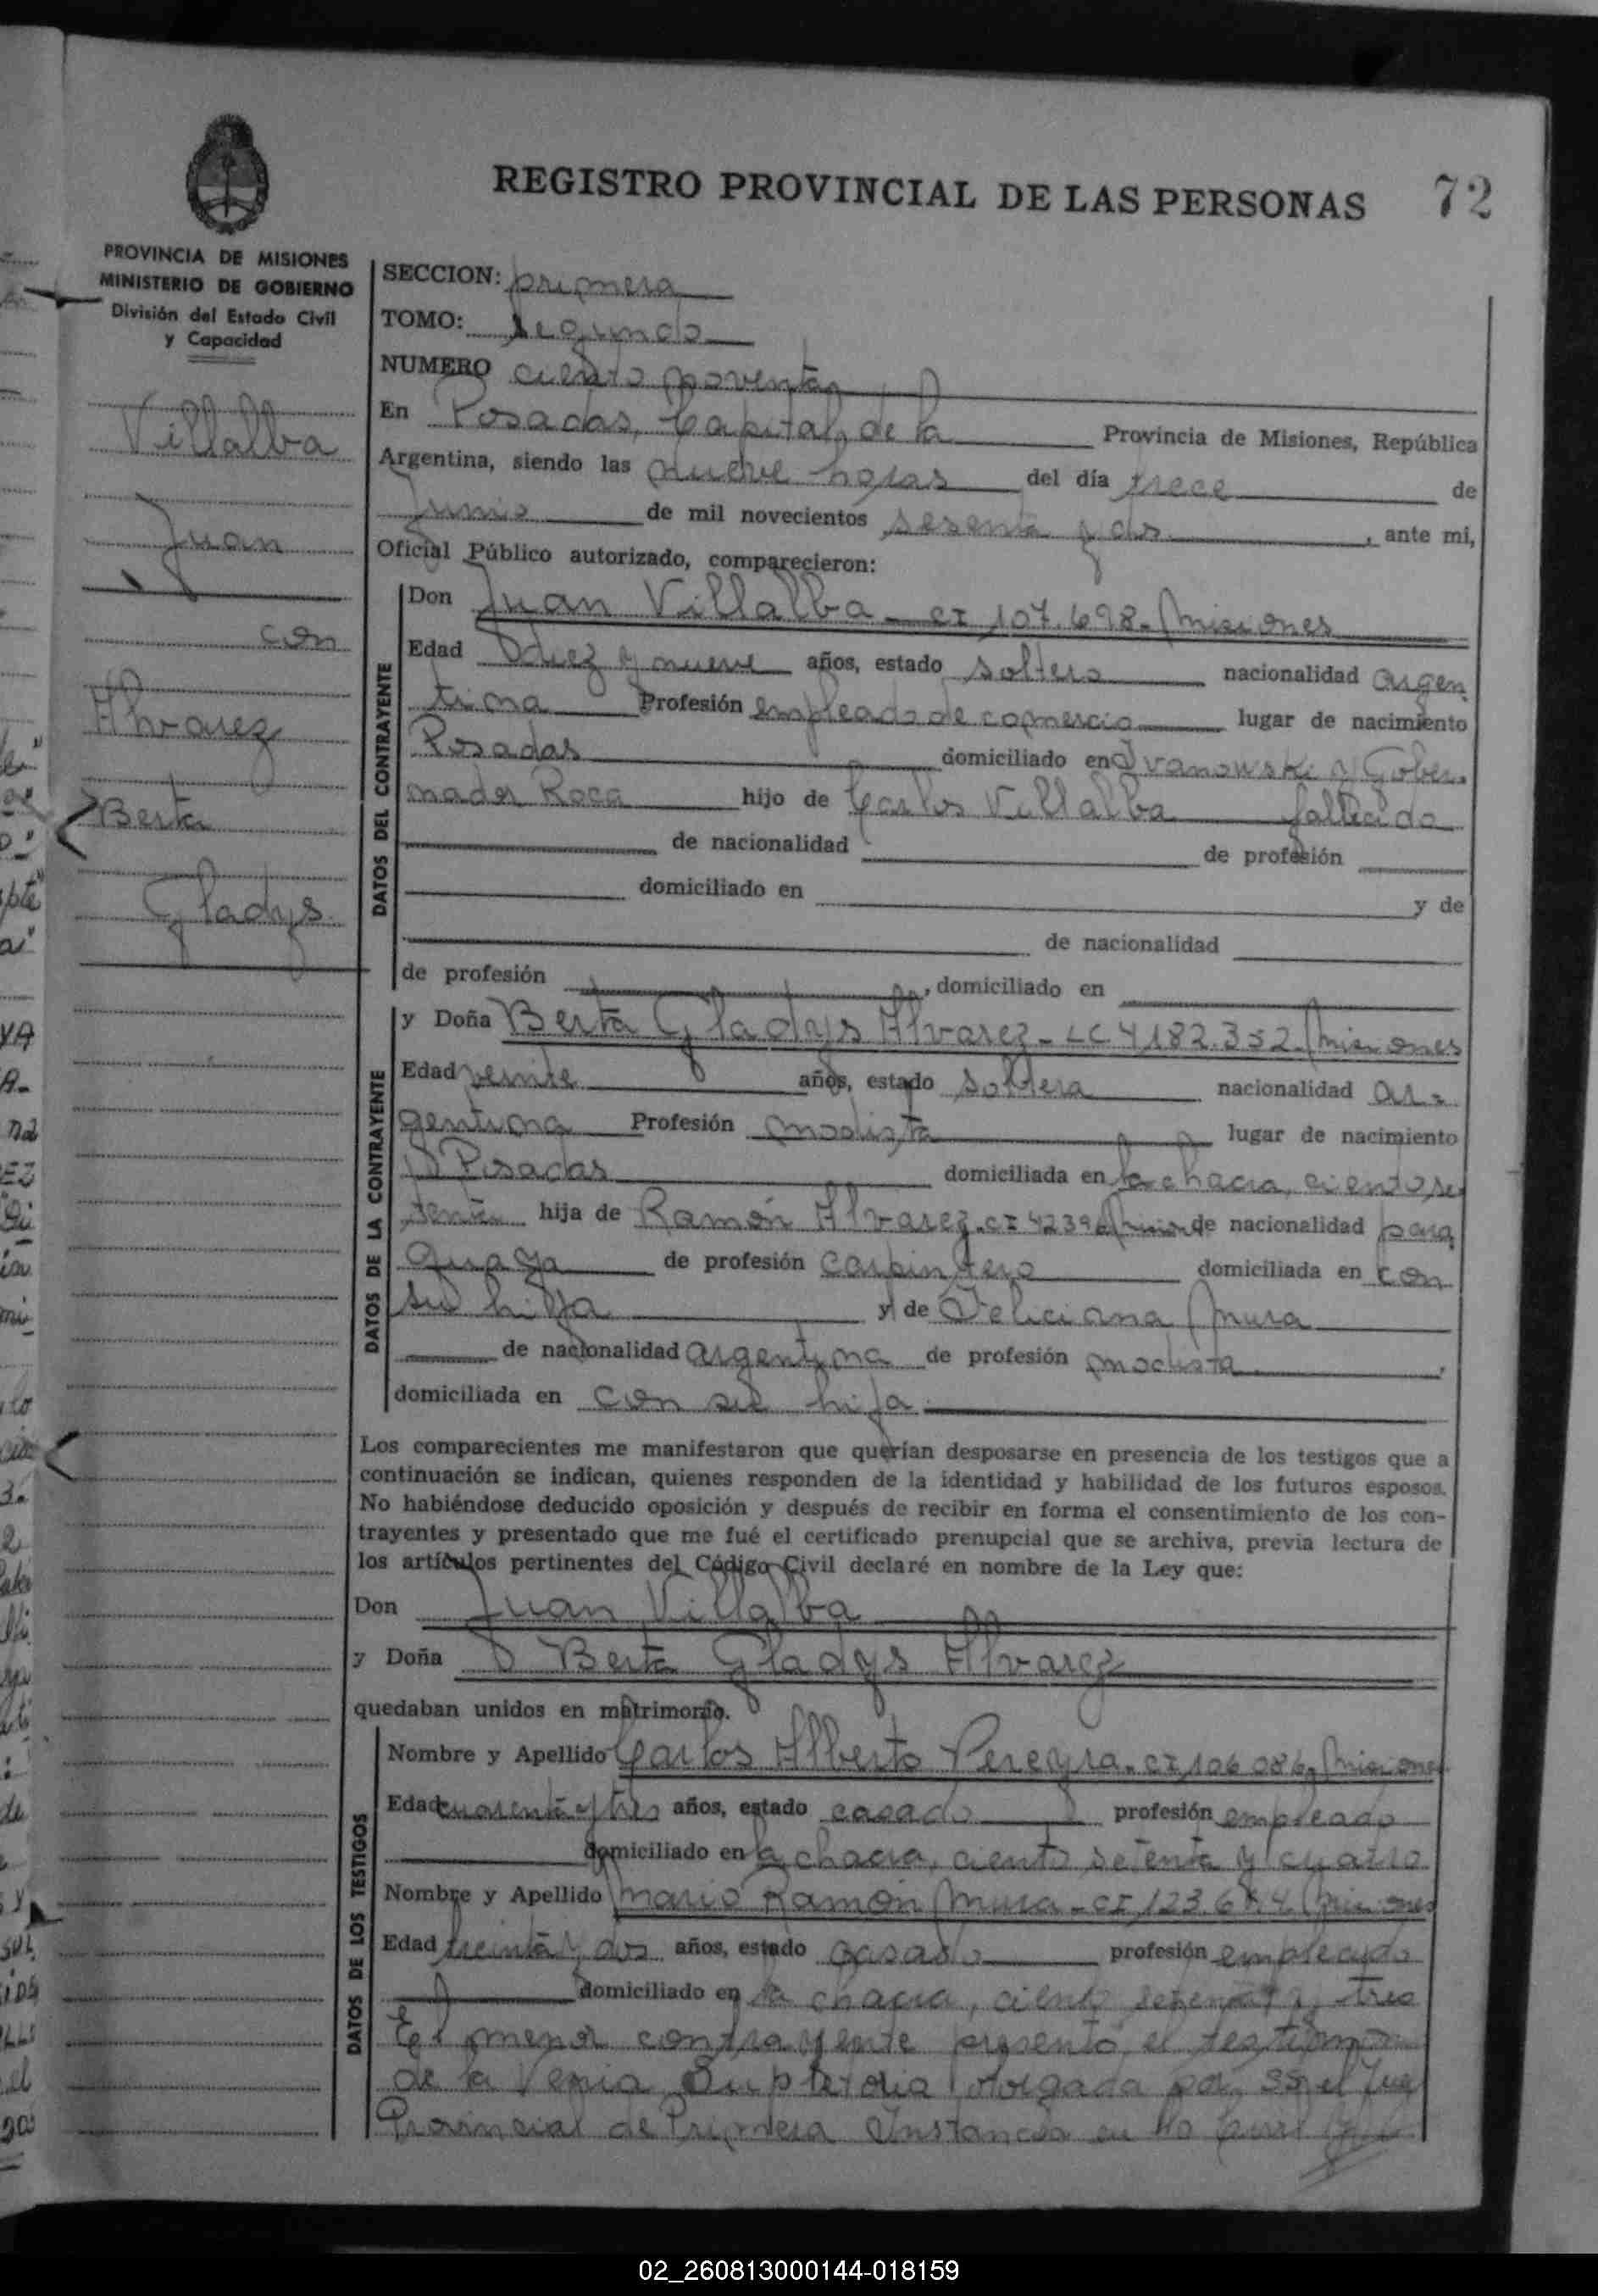 REGISTRO PROVINCIAL DE LAS PERSONAS 72
PROVINCIA DE MISIONES
MINISTERIO DE GOBIERNO
División del Estado Civil
y Capacidad
Villalba
Juan
con
Alvarez
Berta
Gladys
SECCION: primera
TOMO: segundo
NUMERO ciento noventa
En Posadas, Capital de la Provincia de Misiones, República
Argentina, siendo las nueve horas del día trece de
Junio de mil novecientos sesenta y dos, ante mi,
Oficial Público autorizado, comparecieron:
DATOS DEL CONTRAYENTE
Don Juan Villalba - CI 107.698 - Misiones
Edad diez y nueve años, estado soltero nacionalidad argen
tina Profesión empleado de comercio lugar de nacimiento
Posadas domiciliado en Ivanowski y Gober-
nador Roca hijo de Carlos Villalba fallecido
de nacionalidad de profesión
domiciliado en y de
de nacionalidad
de profesión , domiciliado en
DATOS DE LA CONTRAYENTE
y Doña Berta Gladys Alvarez - LC 4182.352 - Misiones
Edad veinte años, estado soltera nacionalidad ar-
gentina Profesión modista lugar de nacimiento
Posadas domiciliada en la chacra, ciento se
tenta hija de Ramón Alvarez - CI de nacionalidad para
guaya de profesión carpintero domiciliada en con
su hija y de Feliciana Mura
de nacionalidad argentina de profesión modista,
domiciliada en con su hija.
Los comparecientes me manifestaron que querían desposarse en presencia de los testigos que a
continuación se indican, quienes responden de la identidad y habilidad de los futuros esposos.
No habiéndose deducido oposición y después de recibir en forma el consentimiento de los con-
trayentes y presentado que me fué el certificado prenupcial que se archiva, previa lectura de
los artículos pertinentes del Código Civil declaré en nombre de la Ley que:
Don Juan Villalba
y Doña Berta Gladys Alvarez
quedaban unidos en matrimonio.
DATOS DE LOS TESTIGOS
Nombre y Apellido Carlos Alberto Pereyra - CI 106.086 - Misiones
Edad cuarenta y tres años, estado casado profesión empleado
domiciliado en la chacra, ciento setenta y cuatro
Nombre y Apellido Mario Ramón Mura - CI Misiones
Edad treinta y dos años, estado casado profesión empleado
domiciliado en la chacra, ciento setenta y tres
El menor contrayente presentó el testimonio
de la Venia Supletoria otorgada por SS el Juez
Provincial de Primera Instancia en lo Civil
02_260813000144-018159